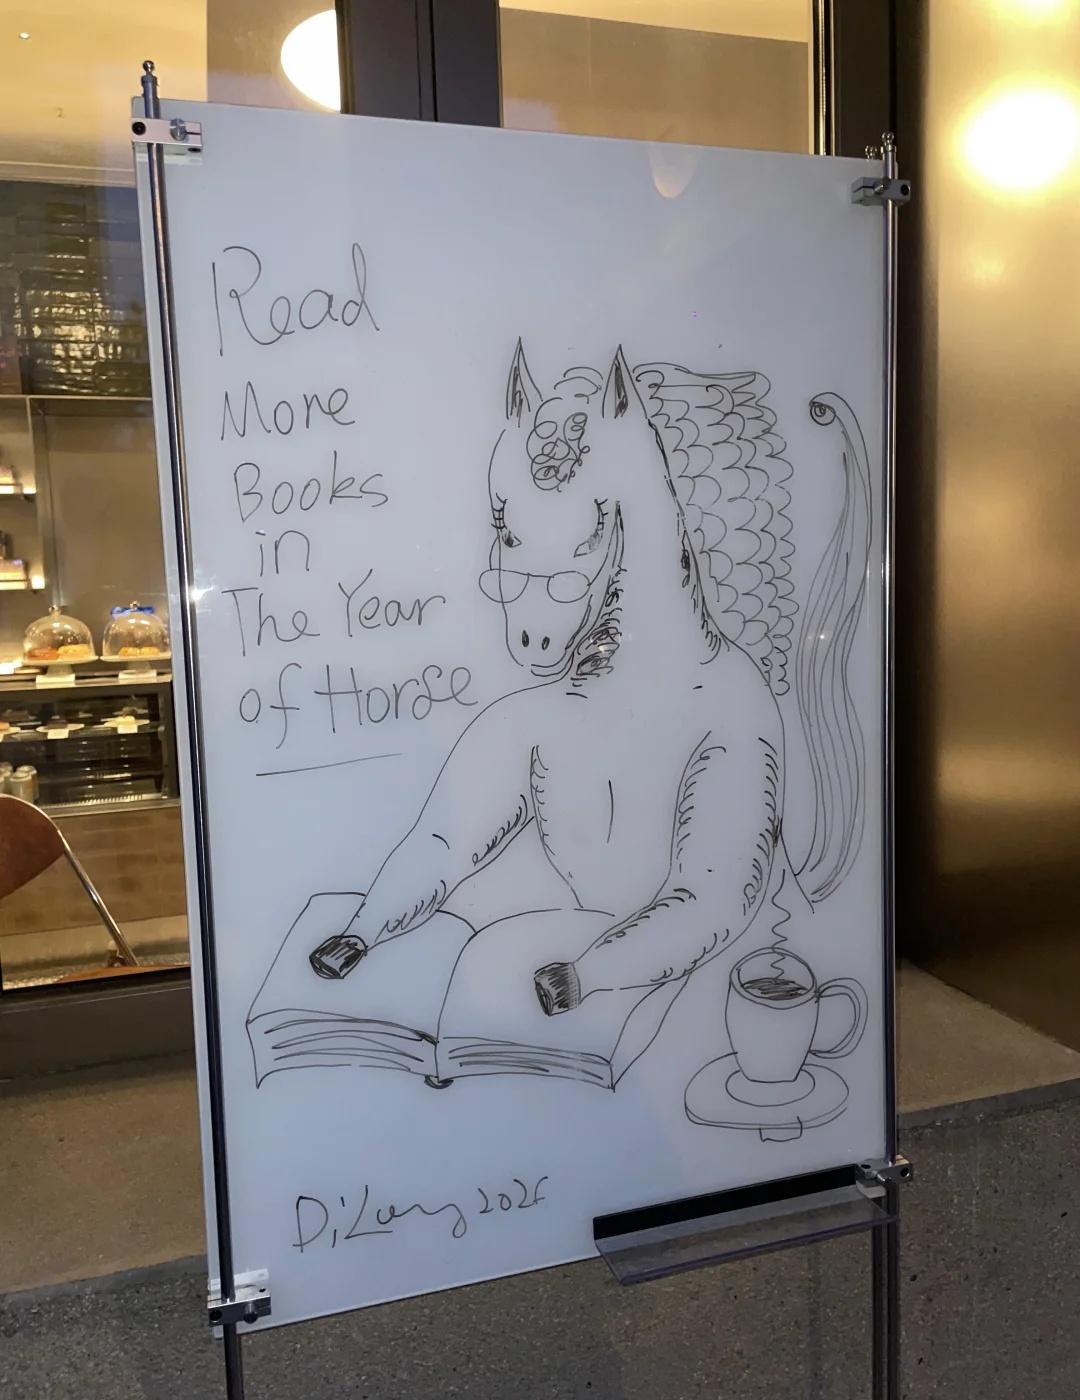 Read
More
Books
in
The Year
of Horse